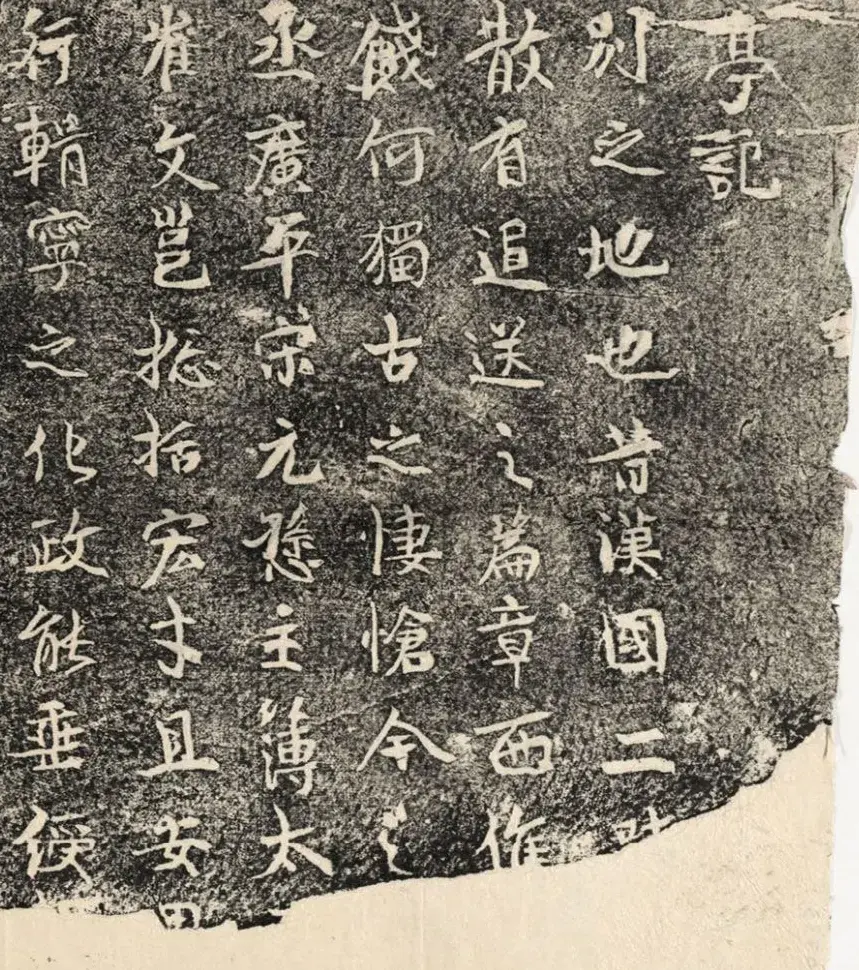 亭記
別之地也昔漢國二
散有追送之篇章西
餞何獨古之悽愴今之
丞廣平宋元主簿太
崔文邕括宏才且安
行寧之化政能垂綬